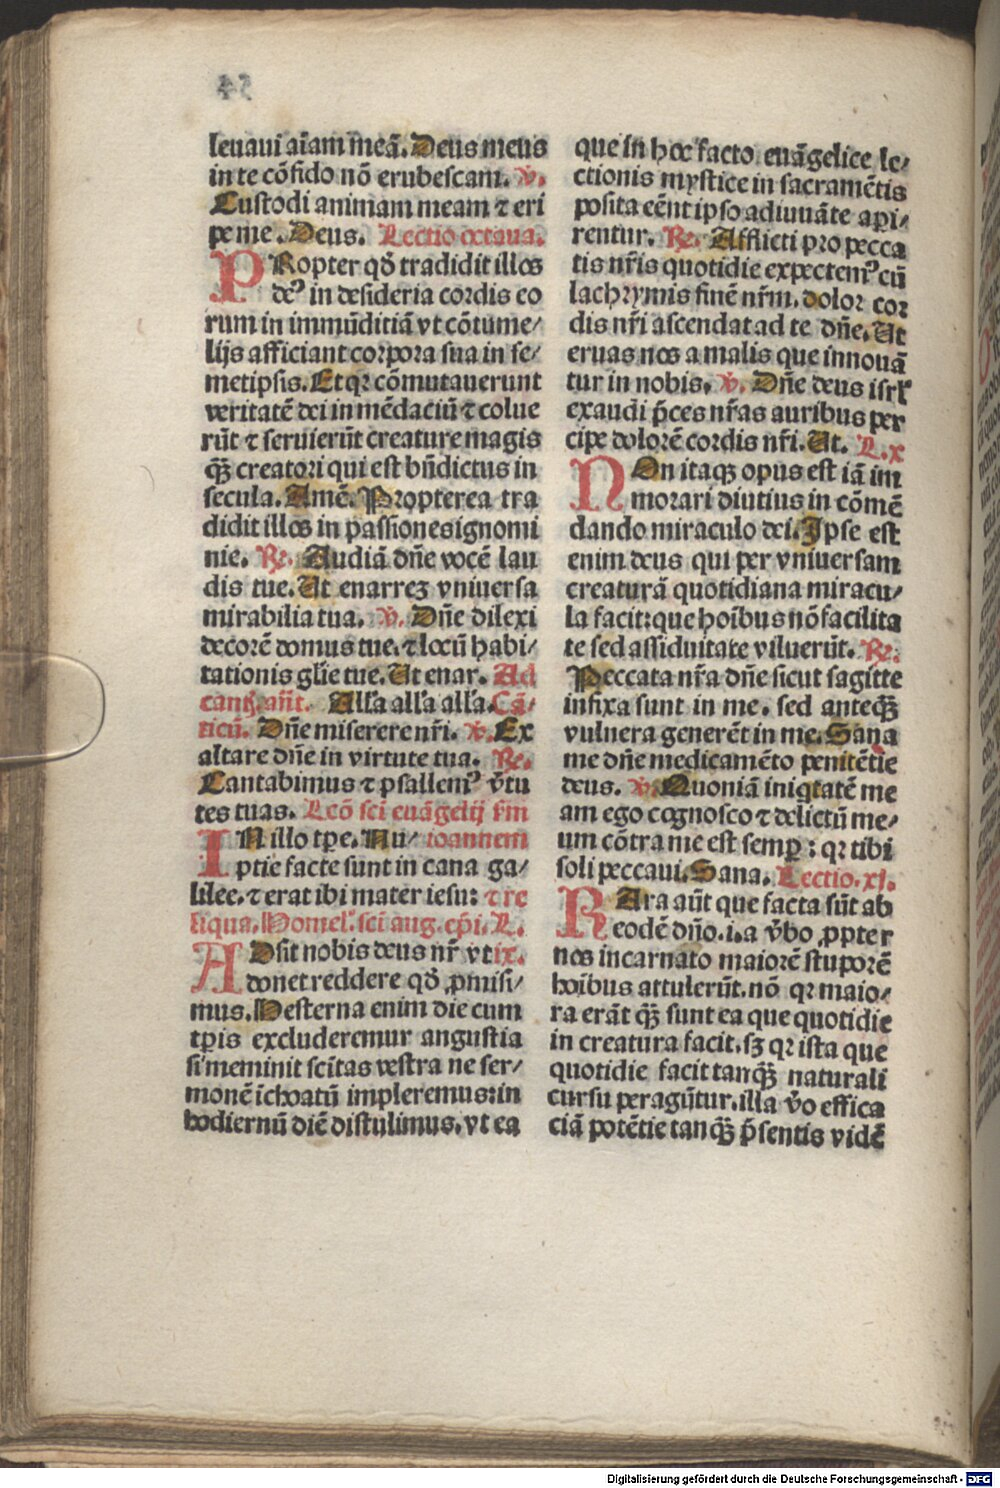 leuaui aīam meā. Deus meus
in te cōfido nō erubescam. ℣.
Custodi animam meam ⁊ eri
pe me. Deus. Lectio octaua.
PRopter qđ tradidit illos
deꝰ in desideria cordis eo
rum in immūditiā vt cōtume/
lijs afficiant corpora sua in se/
metipsis. Et qꝛ cōmutauerunt
veritatē dei in mēdaciū ⁊ colue
rūt ⁊ seruierūt creature magis
qƺ̄ creatori qui est bn̄dictus in
secula. Amē. Propterea tra
didit illos in passiones ignomi
nie. ℟. Audiā dn̄e vocē lau
dis tue. Ut enarreʒ vniuersa
mirabilia tua. ℣. Dn̄e dilexi
decorē domus tue. ⁊ locū habi/
tationis gl̄ie tue. Ut enar. Ad
cantꝫ. an̄t. All'a all'a all'a. Cā/
ticū. Dn̄e miserere nr̄i. ℣. Ex
altare dn̄e in virtute tua. ℟.
Cantabimus ⁊ psallemꝰ v̄tu
tes tuas. Lcō sci euāgelij s̄m
IN illo tꝑe. Nu/ ioannem
ptie facte sunt in cana ga/
lilee. ⁊ erat ibi mater iesu: ⁊ re
liqua. Homel'. sci aug. ep̄i. L.
ADsit nobis deus nr̄ vt ix.
donet reddere qđ ꝓmisi/
mus. Hesterna enim die cum
tꝑis excluderemur angustia
si meminit scītas vestra ne ser/
monē īchoatū impleremus: in
hodiernū diē distulimus. vt ea
que in hoc facto euāgelice le/
ctionis mystice in sacramētis
posita eēnt ipso adiuuāte api/
rentur. ℟. Afflicti pro pecca
tis nr̄is quotidie expectemꝰ cū
lachrymis finē nr̄m. dolor cor
dis nr̄i ascendat ad te dn̄e. Ut
eruas nos a malis que innouā
tur in nobis. ℣. Dn̄e deus isrl'
exaudi p̄ces nr̄as auribus per
cipe dolorē cordis nr̄i. Ut. L. x
NOn itaqꝫ opus est iā im
morari diutius in cōmē
dando miraculo dei. Ipse est
enim deus qui per vniuersam
creaturā quotidiana miracu/
la facit: que hoībus nō facilita
te sed assiduitate viluerūt. ℟.
Peccata nr̄a dn̄e sicut sagitte
infixa sunt in me. sed anteqƺ̄
vulnera generēt in me. Sana
me dn̄e medicamēto penitētie
deus. ℣. Quoniā iniqtatē me
am ego cognosco ⁊ delictū me/
um cōtra me est semꝑ: qꝛ tibi
soli peccaui. Sana. Lectio. xj.
RAra aūt que facta sūt ab
eodē dn̄o. i. a v̄bo ꝓpter
nos incarnato maiorē stuporē
hoībus attulerūt. nō qꝛ maio/
ra erāt qƺ̄ sunt ea que quotidie
in creatura facit. sꝫ qꝛ ista que
quotidie facit tanqƺ̄ naturali
cursu peragūtur. illa v̄o effica
ciā potētie tanqƺ̄ p̄sentis vidē
Digitalisierung gefördert durch die Deutsche Forschungsgemeinschaft - DFG